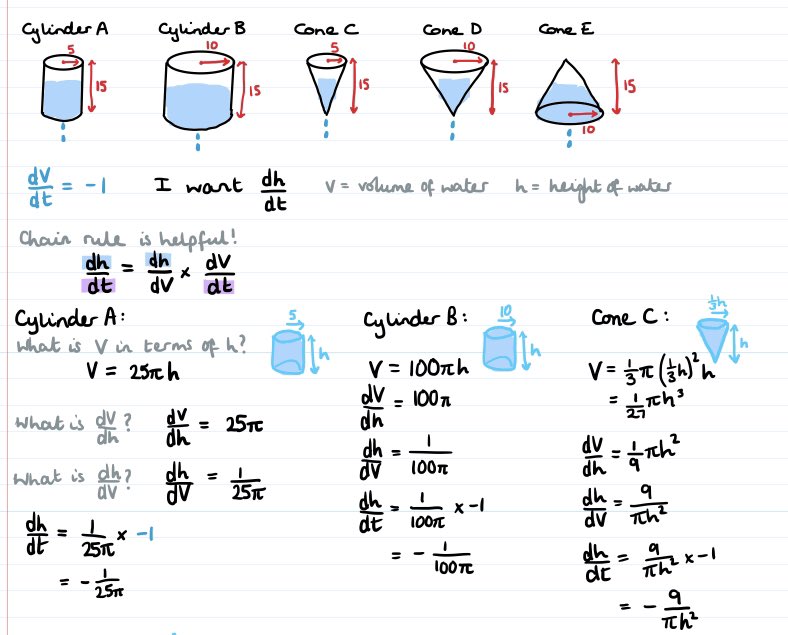 Cylinder A
Cylinder B
Cone C
Cone D
Cone E
5
15
10
15
5
15
10
15
15
10
dV/dt = -1
I want dh/dt
V = volume of water
h = height of water
Chain rule is helpful!
dh/dt = dh/dV × dV/dt
Cylinder A:
What is V in terms of h?
5
h
V = 25πh
What is dV/dh?
dV/dh = 25π
What is dh/dV?
dh/dV = 1/25π
dh/dt = 1/25π × -1
= - 1/25π
Cylinder B:
10
h
V = 100πh
dV/dh = 100π
dh/dV = 1/100π
dh/dt = 1/100π × -1
= - 1/100π
Cone C:
1/3h
h
V = 1/3 π (1/3h)² h
= 1/27 πh³
dV/dh = 1/9 πh²
dh/dV = 9/πh²
dh/dt = 9/πh² × -1
= - 9/πh²